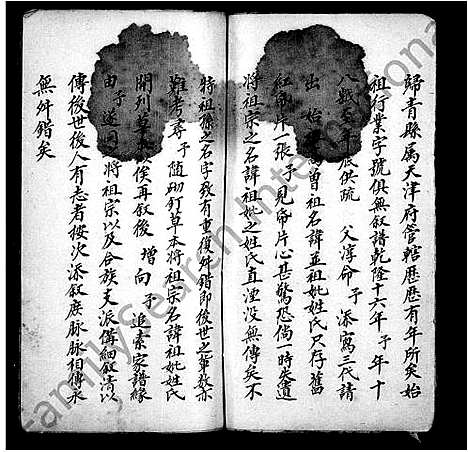 歸青縣属天津府管轄歷歷有年所矣始
祖行業字號俱無叙譜乾隆十六年予年十
八歲 年底供疏 父淳命予添寫三代請
出始 高曾祖名諱並祖妣姓氏只存舊
紅 片一張予見帋片心甚驚恐倘一時失遺
將祖宗之名諱祖妣之姓氏直湮没無傳矣不
特祖孫之名字致有重復舛錯即後世之輩数亦
難考尋予随砌釘草本將祖宗名諱祖妣姓氏
開列草 以俟再叙後 增向予追素家譜緣
由予遂同 將祖宗以及合族支派俻細叙清以
傳後世後人有志者按次添叙庶脉脉相傳永
無舛錯矣
FamilySearch International